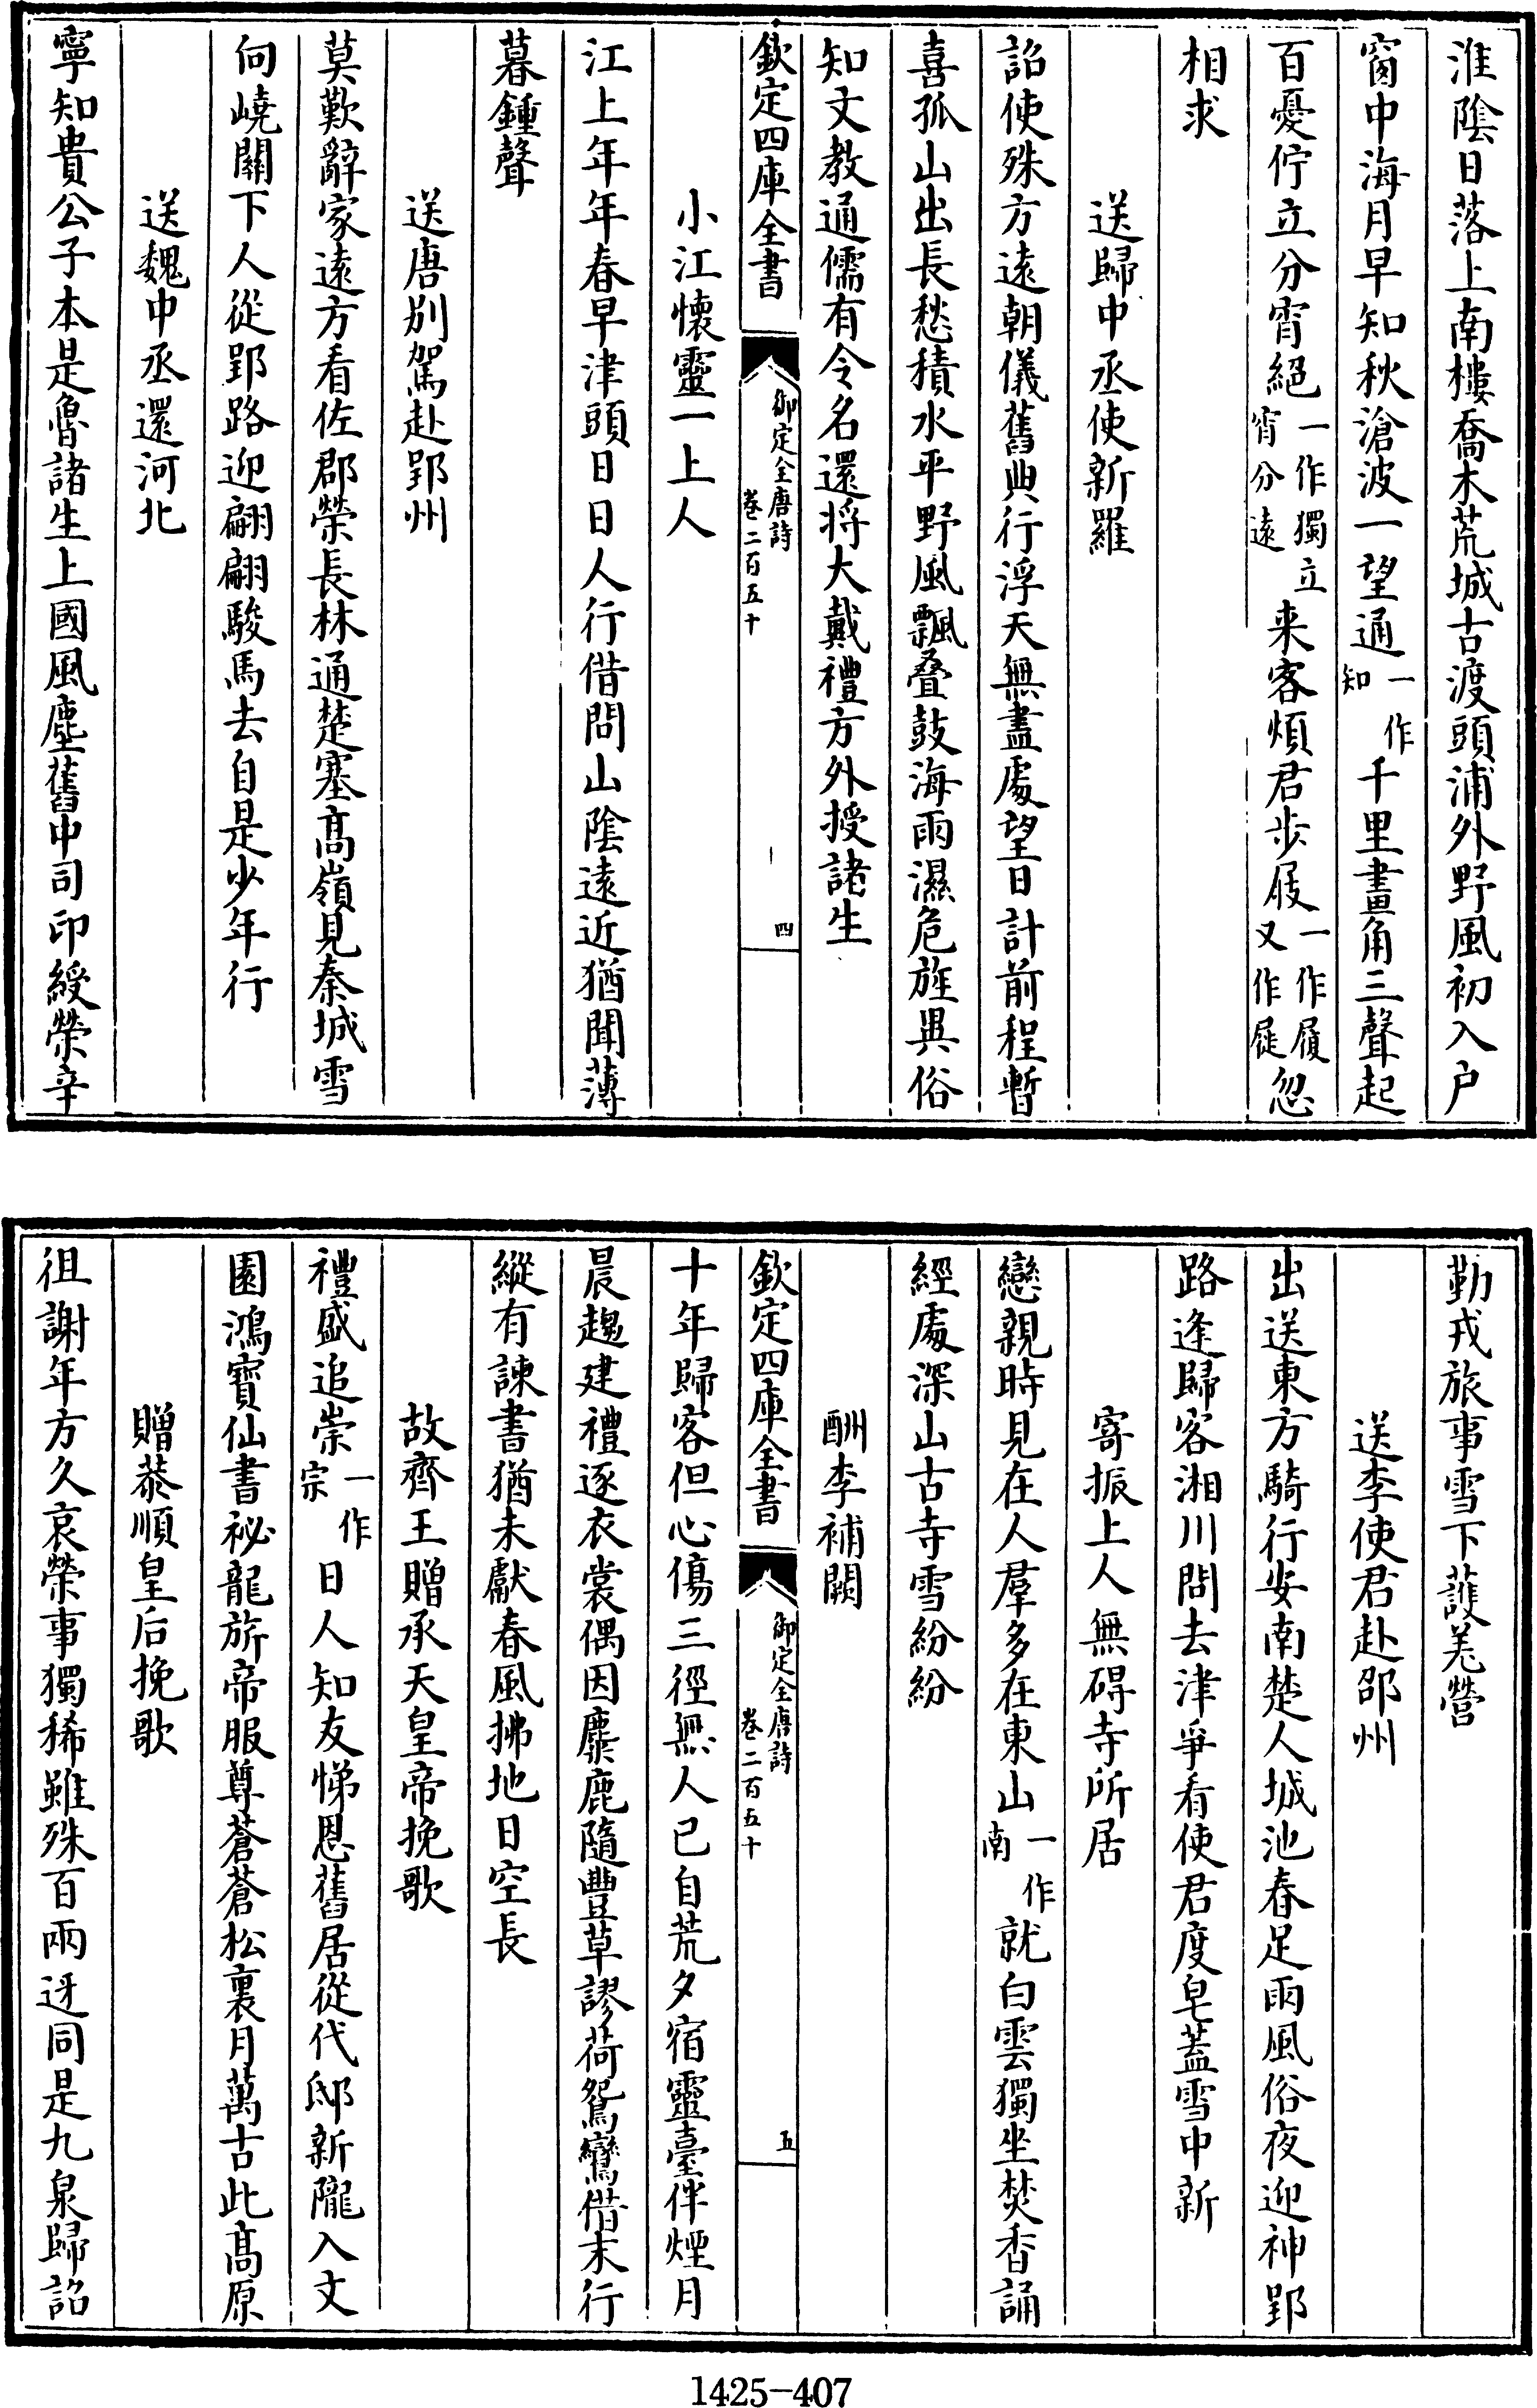 淮陰日落上南樓喬木荒城古渡頭浦外野風初入户
窗中海月早知秋滄波一望通一作知千里畫角三聲起
百憂佇立分宵絕一作獨立宵分遠来客煩君步屐一作履又作屣忽
相求
送歸中丞使新羅
詔使殊方遠朝儀舊典行浮天無盡處望日計前程暫
喜孤山出長愁積水平野風飄叠鼓海雨濕危旌異俗
知文教通儒有令名還將大戴禮方外授諸生
欽定四庫全書
御定全唐詩
卷二百五十
四
小江懷靈一上人
江上年年春早津頭日日人行借問山陰遠近猶聞薄
暮鍾聲
送唐别駕赴郢州
莫歎辭家遠方看佐郡榮長林通楚塞高嶺見秦城雪
向嶢關下人從郢路迎翩翩駿馬去自是少年行
送魏中丞還河北
寧知貴公子本是魯諸生上國風塵舊中司印綬榮辛
勤戎旅事雪下護羌營
送李使君赴邵州
出送東方騎行安南楚人城池春足雨風俗夜迎神郢
路逢歸客湘川問去津爭看使君度皂蓋雪中新
寄振上人無碍寺所居
戀親時見在人羣多在東山一作南就白雲獨坐焚香誦
經處深山古寺雪紛紛
酬李補闕
欽定四庫全書
御定全唐詩
卷二百五十
五
十年歸客但心傷三徑無人已自荒夕宿靈臺伴煙月
晨趨建禮逐衣裳偶因麋鹿隨豐草謬荷鴛鸞借末行
縱有諫書猶未獻春風拂地日空長
故齊王贈承天皇帝挽歌
禮盛追崇一作宗日人知友悌恩舊居從代邸新隴入文
園鴻寶仙書祕龍旂帝服尊蒼蒼松裏月萬古此高原
贈恭順皇后挽歌
徂謝年方久哀榮事獨稀雖殊百兩迓同是九泉歸詔
1425-407